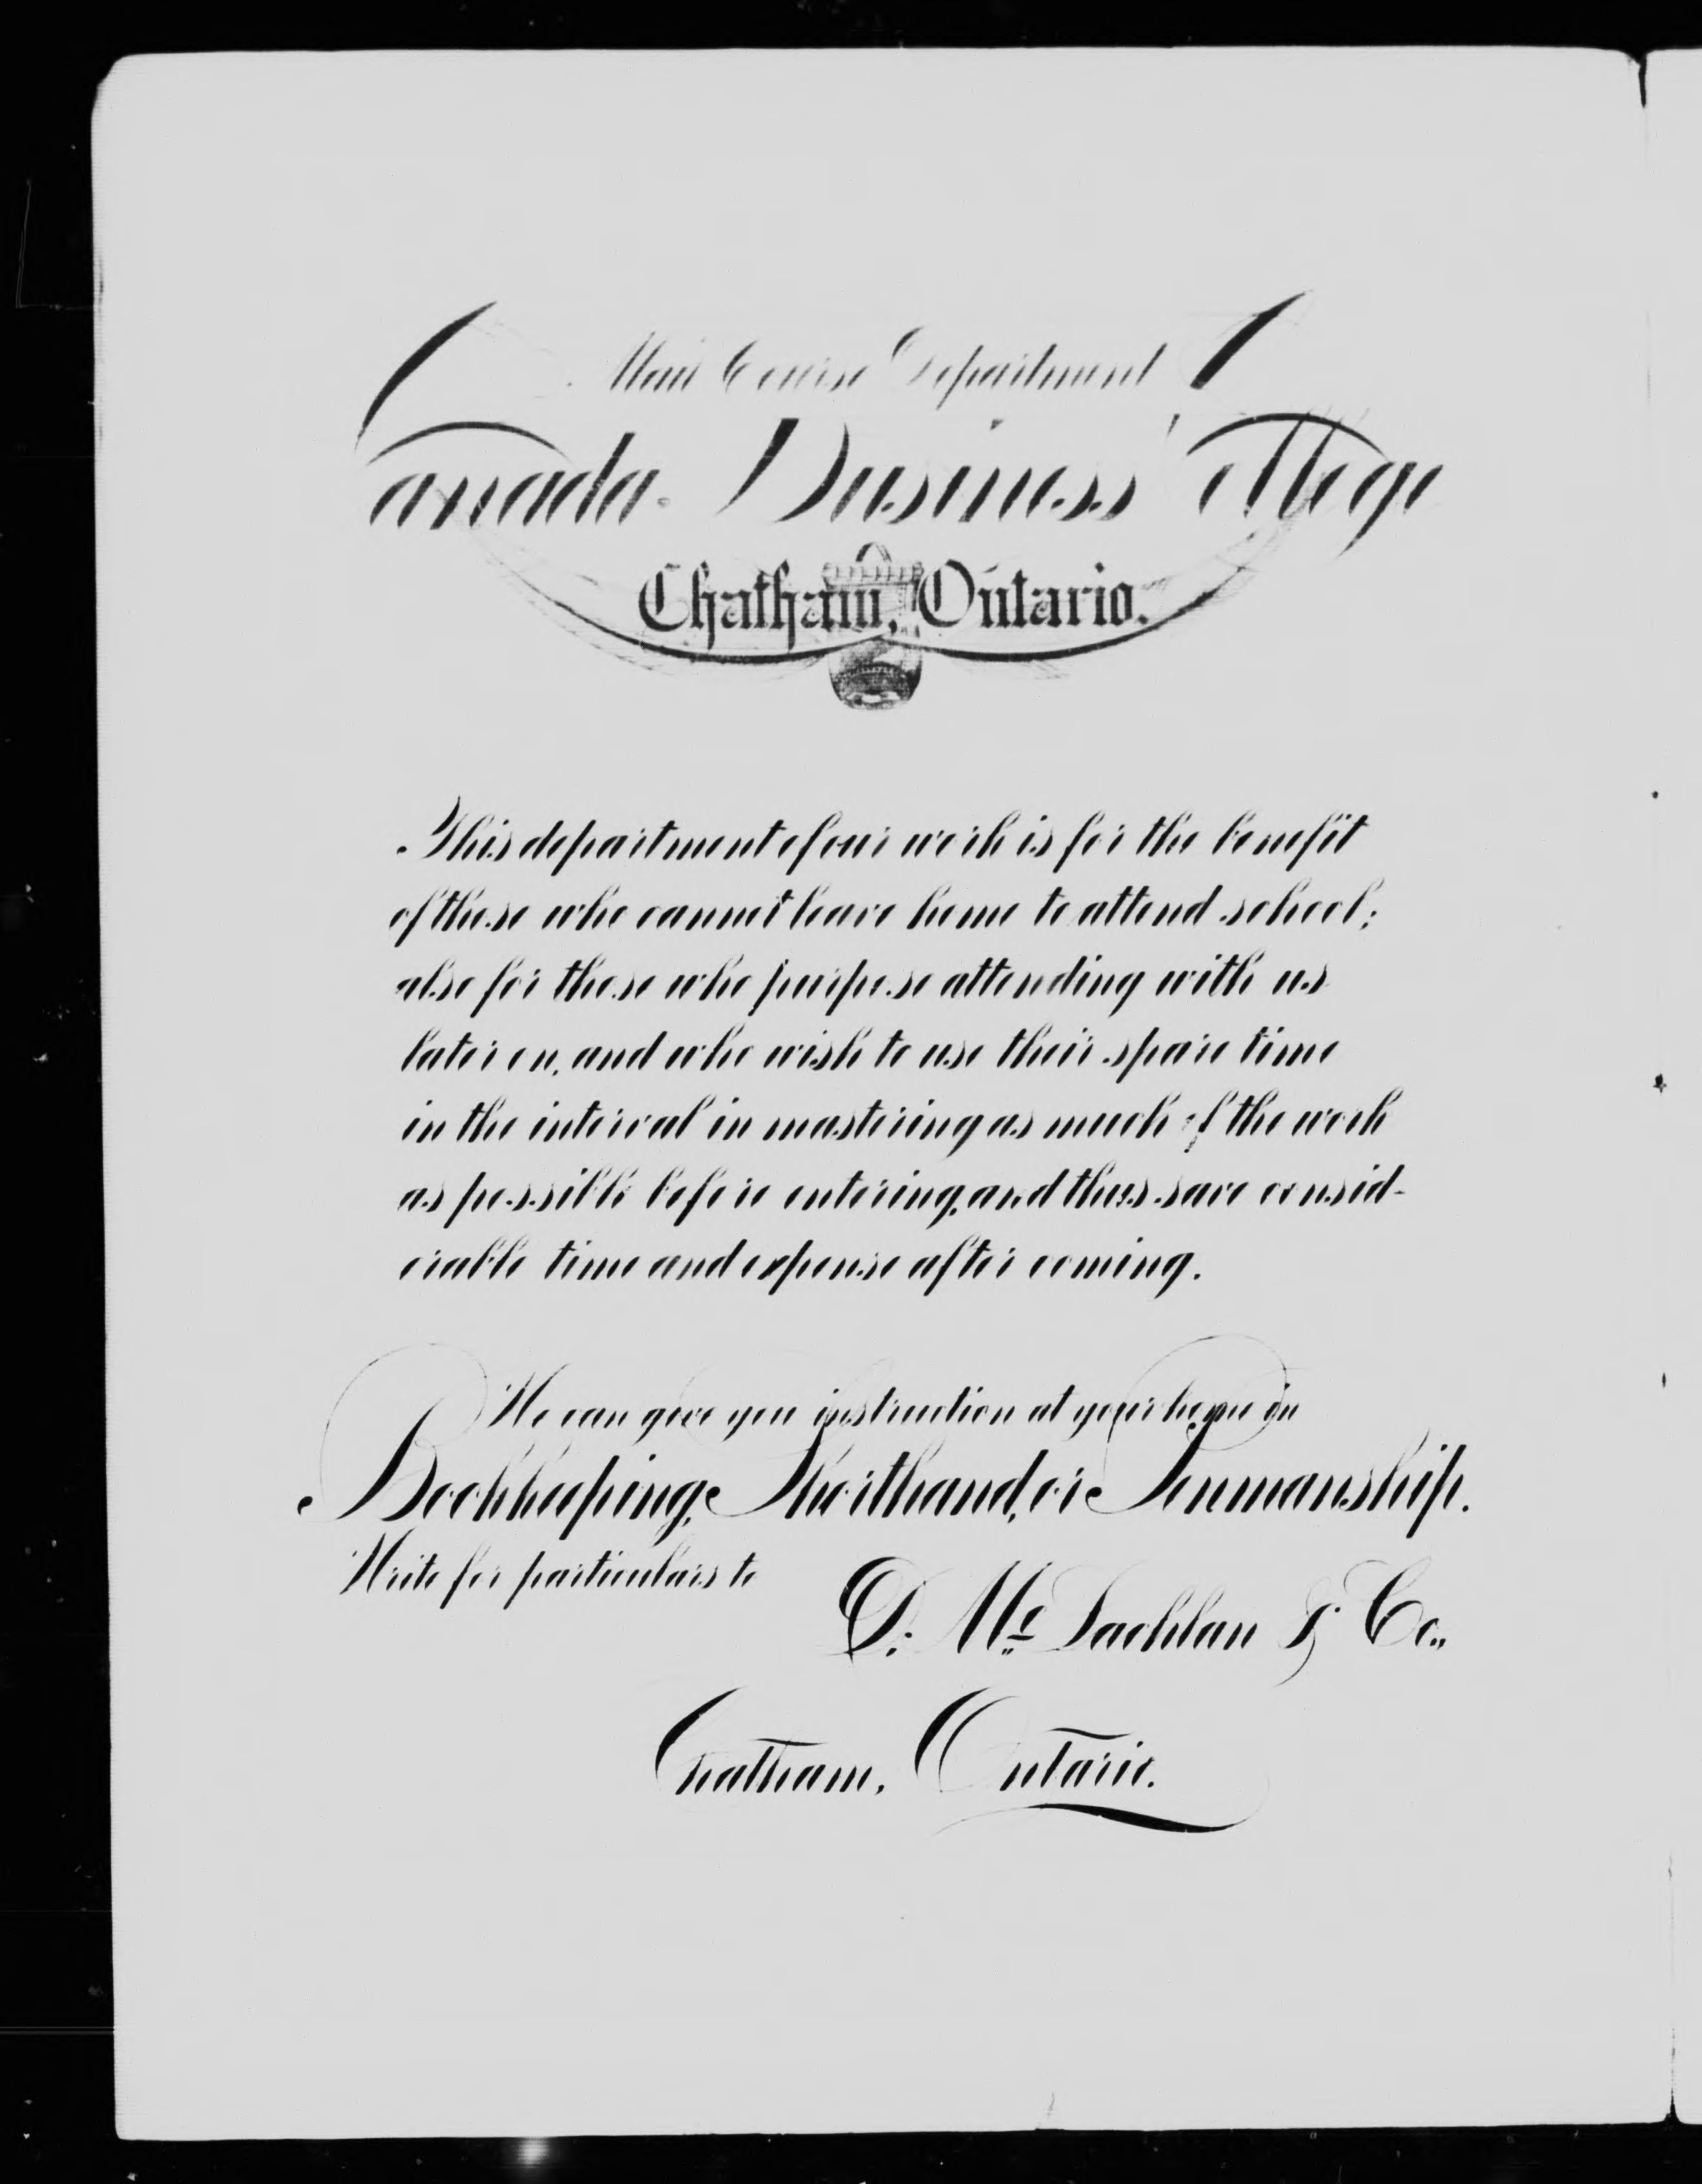 Mail Course Department
Canada Business College
Chatham, Ontario.
This department of our work is for the benefit
of those who cannot leave home to attend school;
also for those who purpose attending with us
later on, and who wish to use their spare time
in the interval in mastering as much of the work
as possible before entering, and thus save consid-
erable time and expense after coming.
We can give you instruction at your home in
Bookkeeping, Shorthand, or Penmanship.
Write for particulars to
D. Mc Lachlan & Co.,
Chatham, Ontario.